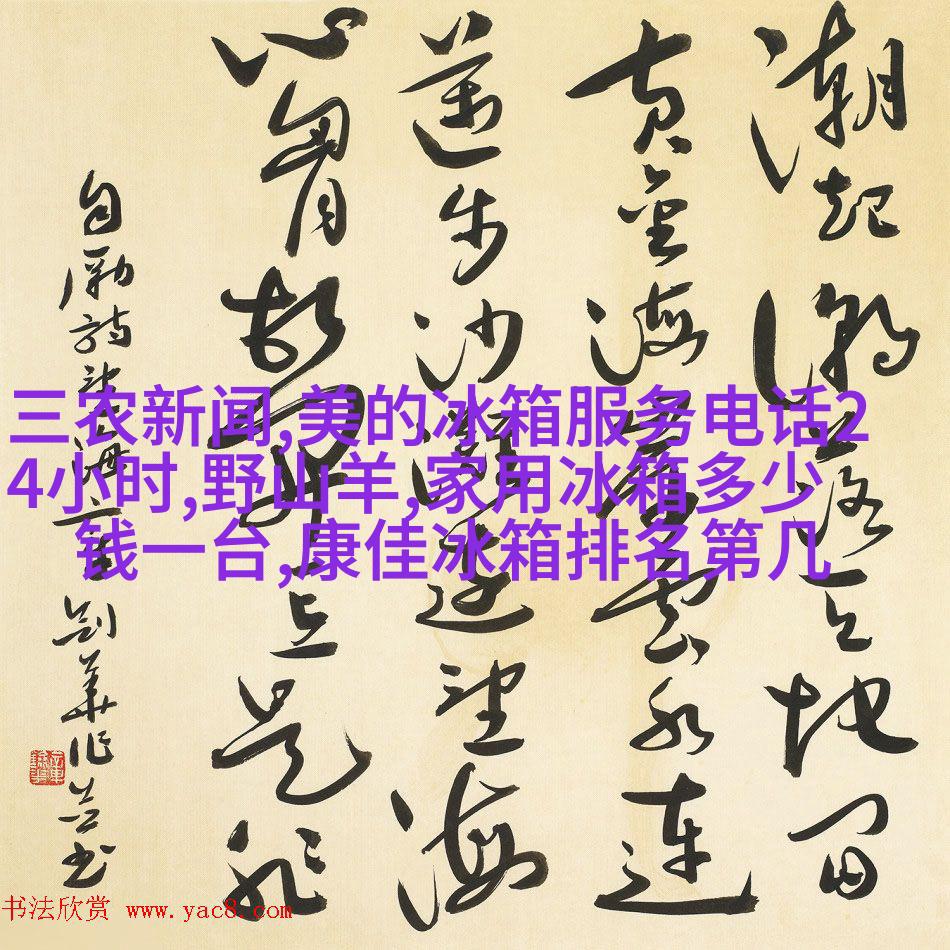 三农新闻,美的冰箱服务电话2
4小时,野山羊,家用冰箱多少
钱一台,康佳冰箱排名第几
潮起潮落天地间
黄金海岸云水连
步沙滩望海
心胸是非
自励诗望海一首 刘华作并书
书法欣赏 www.yac8.com